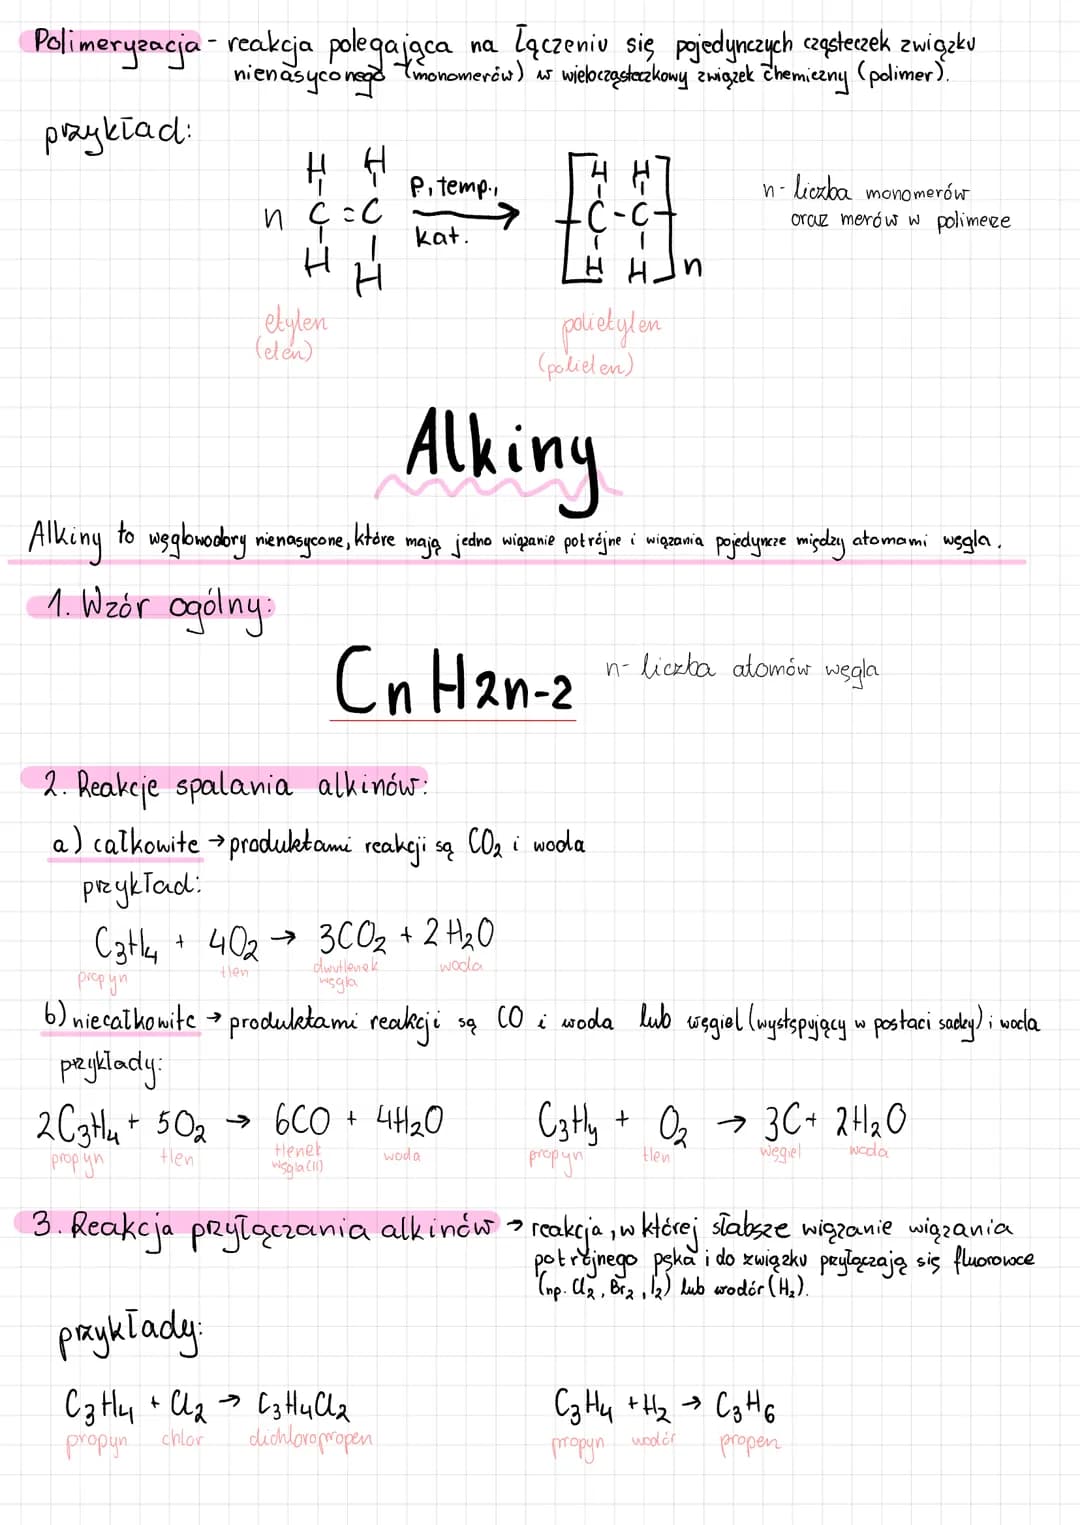 Polimeryzacja - reakcja polegająca na łączeniu się pojedynczych cząsteczek związku
nienasyconego (monomerów) w wielocząsteczkowy związek chemiczny (polimer).
przykład:
H H
n C=C
H H
p, temp.,
kat.
H H
C-C
H H
n
n - liczba monomerów
oraz merów w polimerze
etylen
(eten)
polietylen
(polieten)
Alkiny
Alkiny to węglowodory nienasycone, które mają jedno wiązanie potrójne i wiązania pojedyncze między atomami węgla.
1. Wzór ogólny:
CnH2n-2
n - liczba atomów węgla
2. Reakcje spalania alkinów:
a) całkowite → produktami reakcji są CO2 i woda
przykład:
C3H4 + 4O2 → 3CO2 + 2H2O
propyn tlen dwutlenek woda
węgla
b) niecałkowite → produktami reakcji są CO i woda lub węgiel (występujący w postaci sadzy) i woda
przykłady:
2C3H4 + 5O2 → 6CO + 4H2O
propyn tlen tlenek woda
węgla(II)
C3H4 + O2 → 3C + 2H2O
propyn tlen węgiel woda
3. Reakcja przyłączania alkinów → reakcja, w której słabsze wiązanie wiązania
potrójnego pęka i do związku przyłączają się fluorowce
(np. Cl2, Br2, I2) lub wodór (H2).
przykłady:
C3H4 + Cl2 → C3H4Cl2
propyn chlor dichloropropen
C3H4 + H2 → C3H6
propyn wodór propen